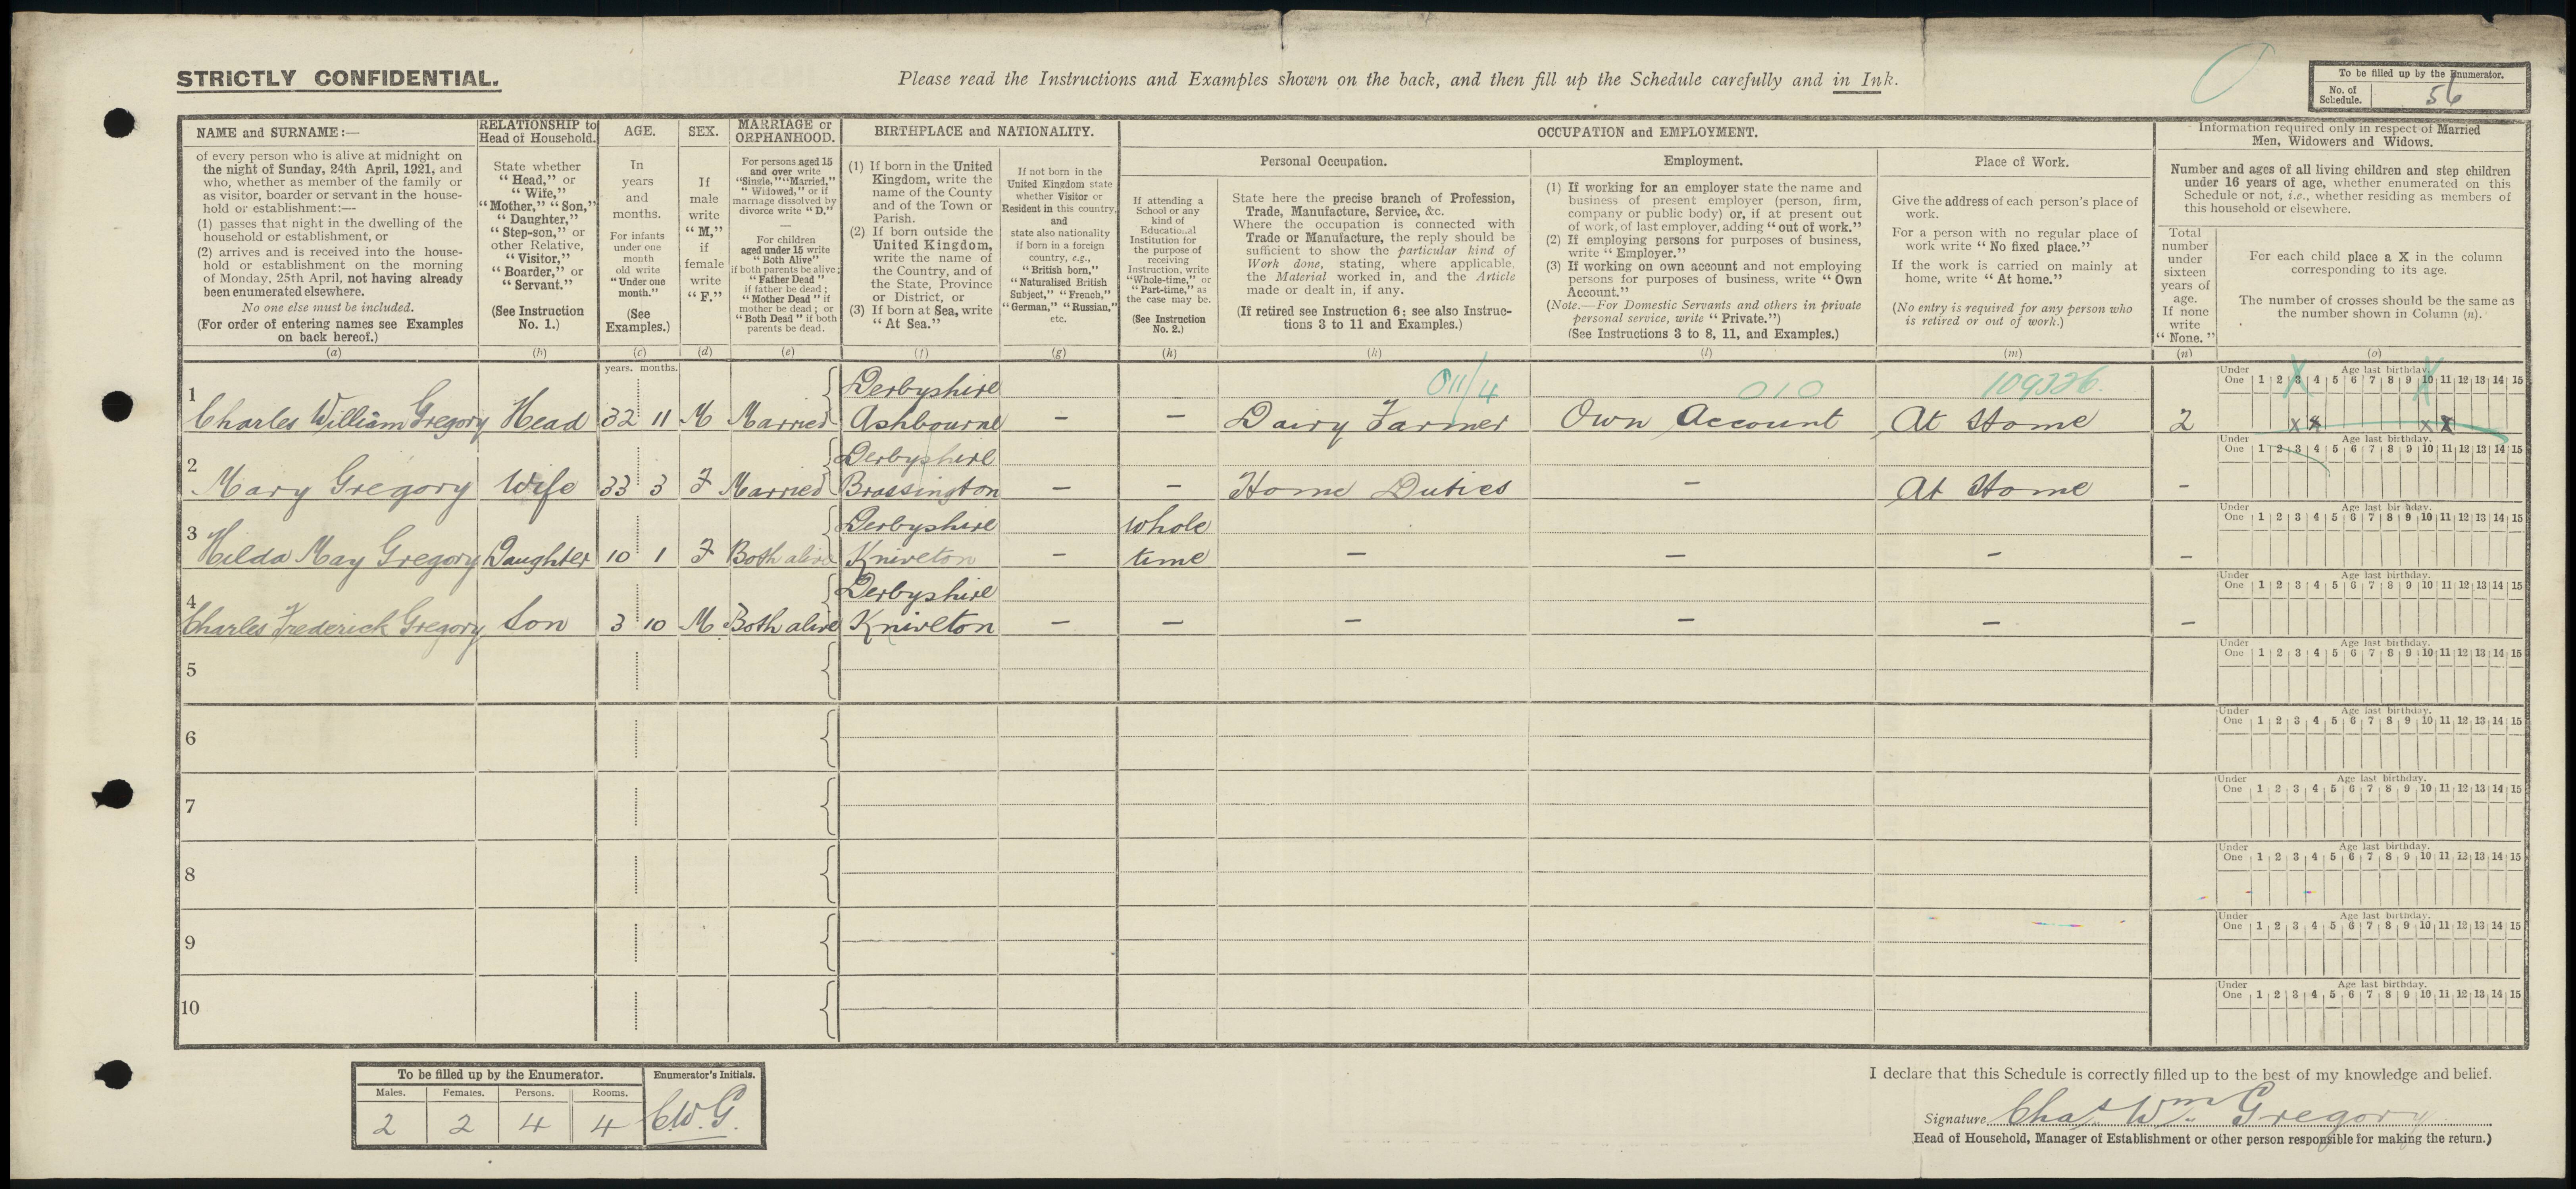 STRICTLY CONFIDENTIAL.
Please read the Instructions and Examples shown on the back, and then fill up the Schedule carefully and in Ink.
To be filled up by the Enumerator.
No. of Schedule.
56
NAME and SURNAME:—
of every person who is alive at midnight on
the night of Sunday, 24th April, 1921, and
who, whether as member of the family or
as visitor, boarder or servant in the house-
hold or establishment:—
(1) passes that night in the dwelling of the
household or establishment, or
(2) arrives and is received into the house-
hold or establishment on the morning
of Monday, 25th April, not having already
been enumerated elsewhere.
No one else must be included.
(For order of entering names see Examples
on back hereof.)
(a)
RELATIONSHIP to
Head of Household.
State whether
"Head," or
"Wife,"
"Mother," "Son,"
"Daughter,"
"Step-son," or
other Relative,
"Visitor,"
"Boarder," or
"Servant."
(See Instruction
No. 1.)
(b)
AGE.
In
years
and
months.
For infants
under one
month
old write
"Under one
month."
(See
Examples.)
(c)
SEX.
If
male
write
"M,"
if
female
write
"F."
(d)
MARRIAGE or
ORPHANHOOD.
For persons aged 15
and over write
"Single," "Married,"
"Widowed," or if
marriage dissolved by
divorce write "D."
—
For children
aged under 15 write
"Both Alive"
if both parents be alive;
"Father Dead"
if father be dead;
"Mother Dead" if
mother be dead; or
"Both Dead" if both
parents be dead.
(e)
BIRTHPLACE and NATIONALITY.
(1) If born in the United
Kingdom, write the
name of the County
and of the Town or
Parish.
(2) If born outside the
United Kingdom,
write the name of
the Country, and of
the State, Province
or District, or
(3) If born at Sea, write
"At Sea."
(f)
If not born in the
United Kingdom state
whether Visitor or
Resident in this country,
and
state also nationality
if born in a foreign
country, e.g.,
"British born,"
"Naturalised British
Subject," "French,"
"German," "Russian,"
etc.
(g)
OCCUPATION and EMPLOYMENT.
If attending a
School or any
kind of
Educational
Institution for
the purpose of
receiving
Instruction, write
"Whole-time," or
"Part-time," as
the case may be.
(See Instruction
No. 2.)
(h)
Personal Occupation.
State here the precise branch of Profession,
Trade, Manufacture, Service, &c.
Where the occupation is connected with
Trade or Manufacture, the reply should be
sufficient to show the particular kind of
Work done, stating, where applicable,
the Material worked in, and the Article
made or dealt in, if any.
(If retired see Instruction 6; see also Instruc-
tions 3 to 11 and Examples.)
(k)
Employment.
(1) If working for an employer state the name and
business of present employer (person, firm,
company or public body) or, if at present out
of work, of last employer, adding "out of work."
(2) If employing persons for purposes of business,
write "Employer."
(3) If working on own account and not employing
persons for purposes of business, write "Own
Account."
(Note.—For Domestic Servants and others in private
personal service, write "Private.")
(See Instructions 3 to 8, 11, and Examples.)
(l)
Place of Work.
Give the address of each person's place of
work.
For a person with no regular place of
work write "No fixed place."
If the work is carried on mainly at
home, write "At home."
(No entry is required for any person who
is retired or out of work.)
(m)
Information required only in respect of Married
Men, Widowers and Widows.
Number and ages of all living children and step children
under 16 years of age, whether enumerated on this
Schedule or not, i.e., whether residing as members of
this household or elsewhere.
Total
number
under
sixteen
years of
age.
If none
write
"None."
(n)
For each child place a X in the column
corresponding to its age.
The number of crosses should be the same as
the number shown in Column (n).
(o)
years. months.
011/4 010 109326
1 Charles William Gregory Head 32 11 M Married Derbyshire Ashbourne — — Dairy Farmer Own Account At Home 2
Under One 1 2 3 4 5 6 7 8 9 10 11 12 13 14 15 Age last birthday.
X X X X
2 Mary Gregory Wife 33 3 F Married Derbyshire Brassington — — Home Duties — At Home -
Under One 1 2 3 4 5 6 7 8 9 10 11 12 13 14 15 Age last birthday.
3 Hilda May Gregory Daughter 10 1 F Both alive Derbyshire Kniveton — whole time — — — -
Under One 1 2 3 4 5 6 7 8 9 10 11 12 13 14 15 Age last birthday.
4 Charles Frederick Gregory Son 3 10 M Both alive Derbyshire Kniveton — — — — — -
Under One 1 2 3 4 5 6 7 8 9 10 11 12 13 14 15 Age last birthday.
5
Under One 1 2 3 4 5 6 7 8 9 10 11 12 13 14 15 Age last birthday.
6
Under One 1 2 3 4 5 6 7 8 9 10 11 12 13 14 15 Age last birthday.
7
Under One 1 2 3 4 5 6 7 8 9 10 11 12 13 14 15 Age last birthday.
8
Under One 1 2 3 4 5 6 7 8 9 10 11 12 13 14 15 Age last birthday.
9
Under One 1 2 3 4 5 6 7 8 9 10 11 12 13 14 15 Age last birthday.
10
Under One 1 2 3 4 5 6 7 8 9 10 11 12 13 14 15 Age last birthday.
To be filled up by the Enumerator.
Males. Females. Persons. Rooms.
2 2 4 4
Enumerator's Initials.
C.W.G.
I declare that this Schedule is correctly filled up to the best of my knowledge and belief.
Signature Chas Wm. Gregory
Head of Household, Manager of Establishment or other person responsible for making the return.)